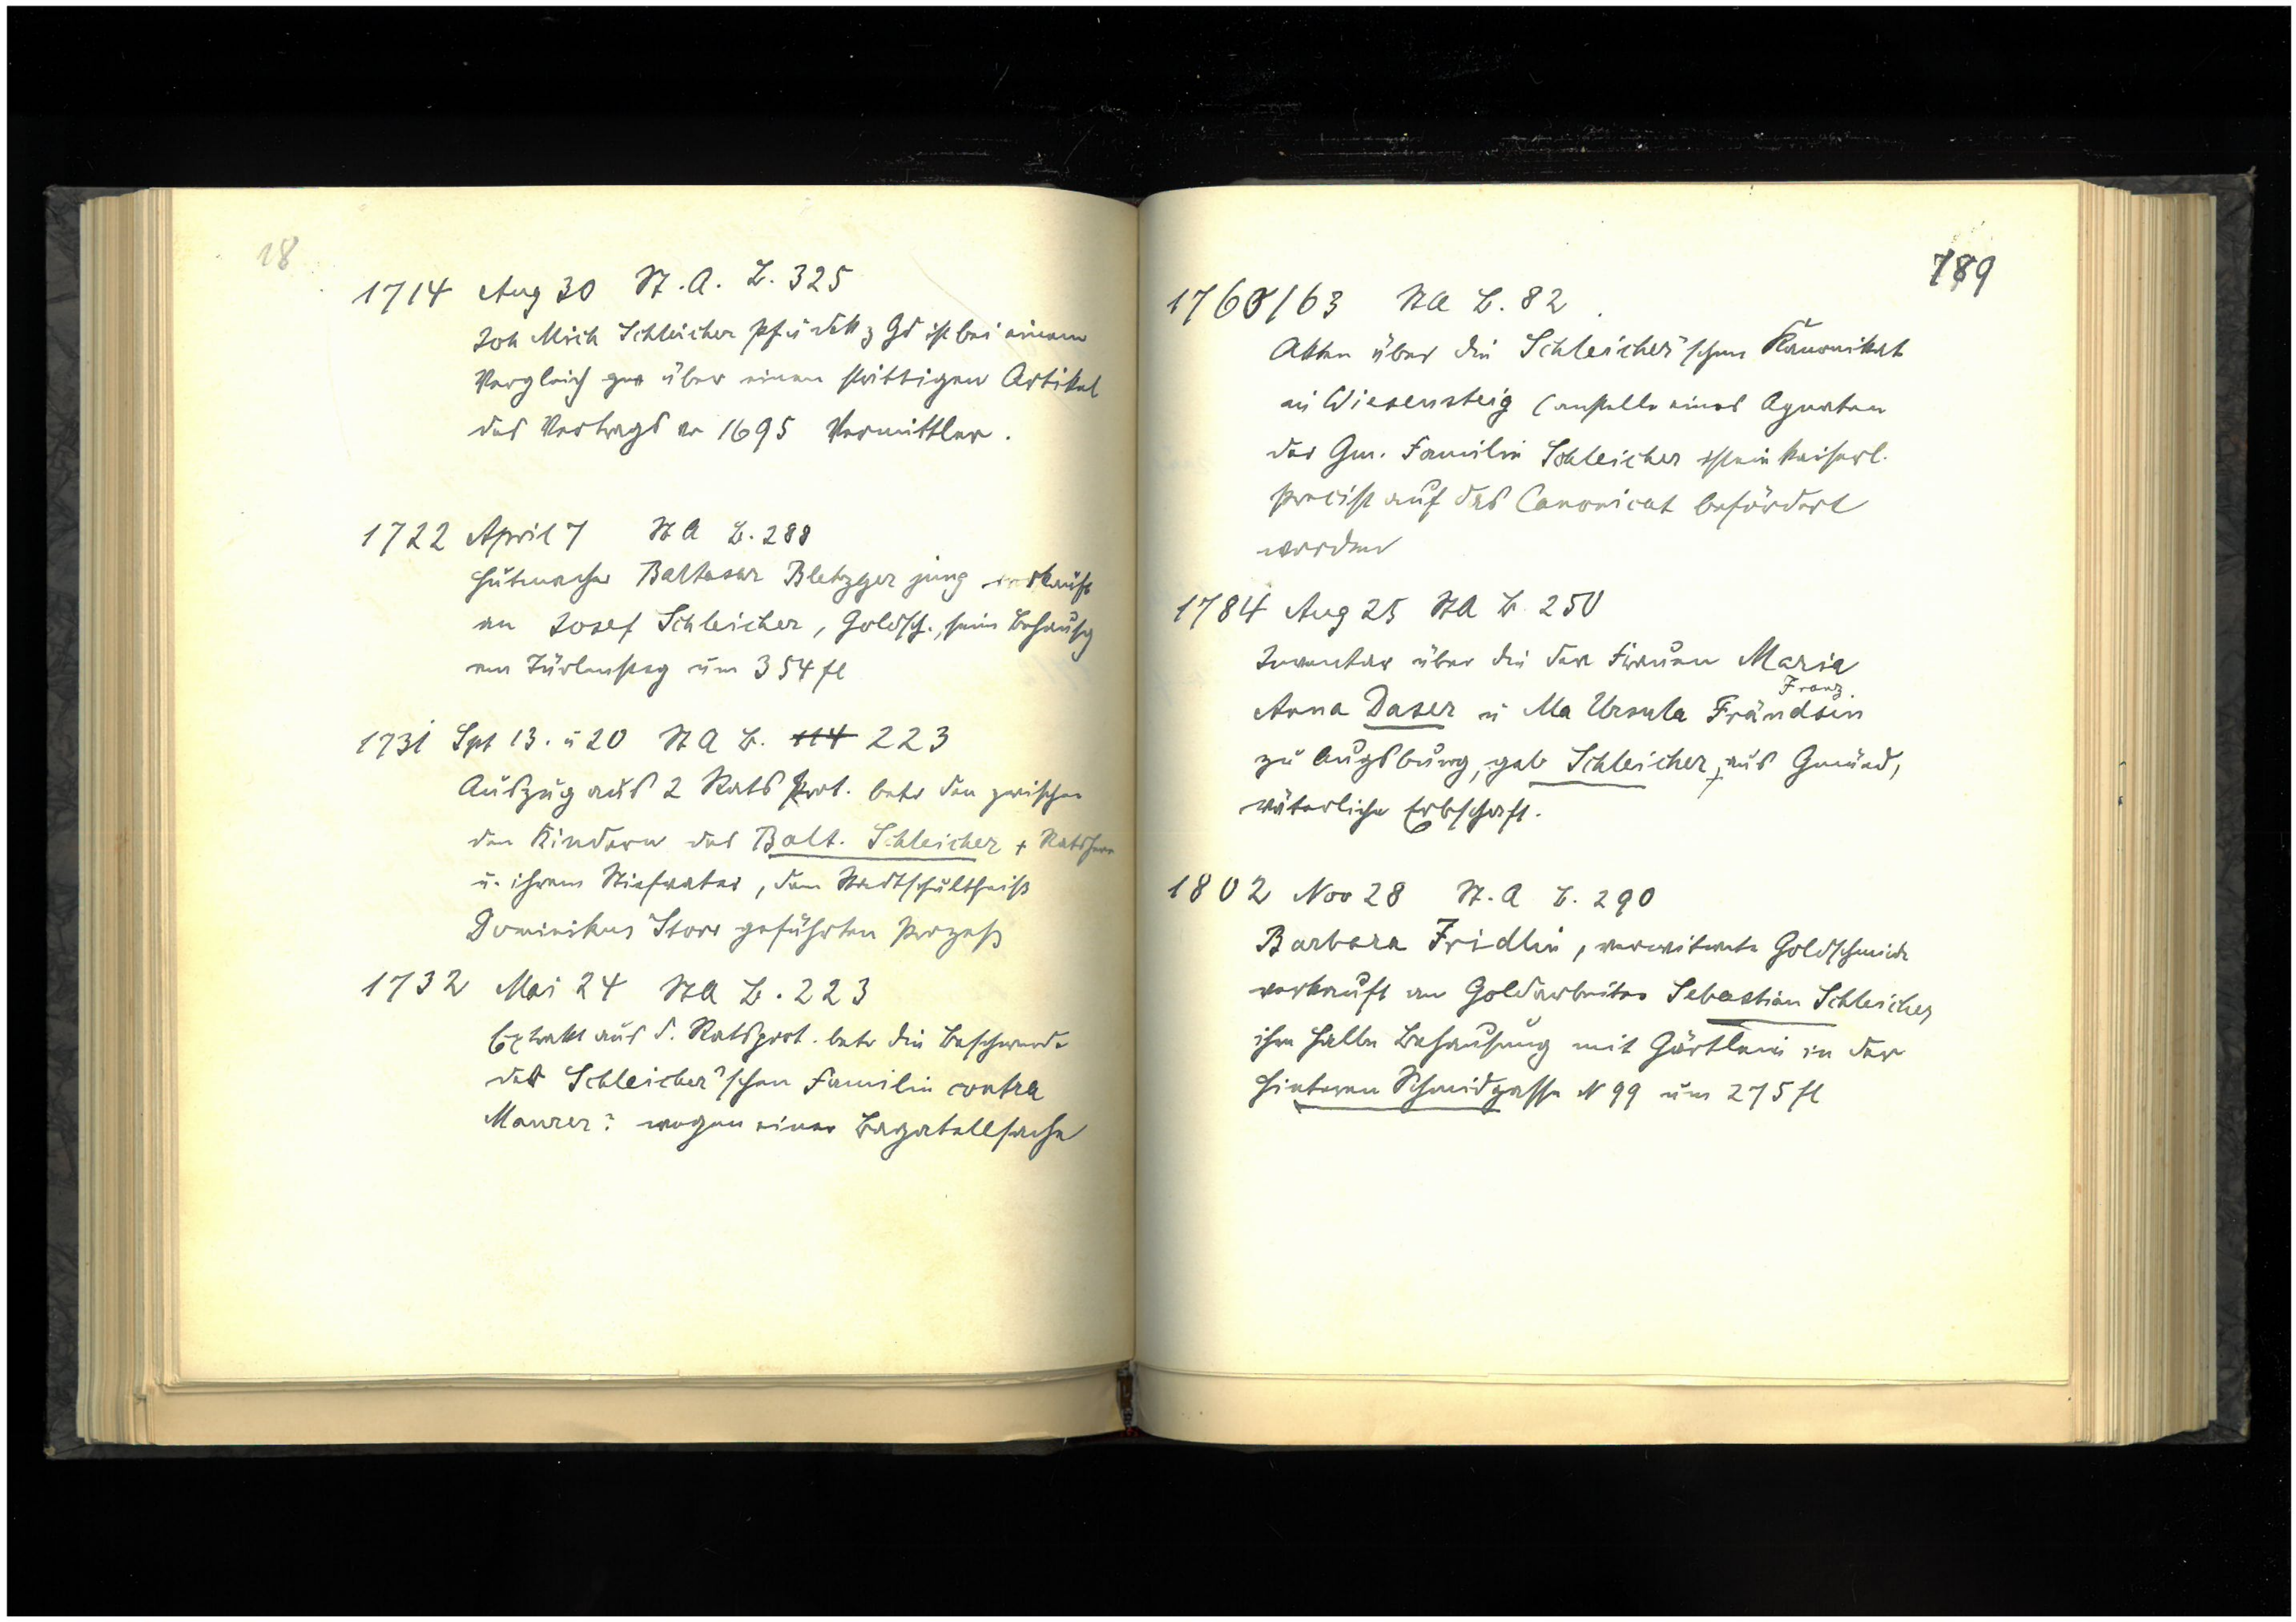 18
1714 Aug 30 St. A. B. 325
Joh Mich Schleicher Pf u Dek z Gd ist bei einem
Vergleich über einen strittigen Artikel
des Vertrags v 1695 Vermittler.
1722 April 7 St A B. 288
Hutmacher Baltasar Bletzger jung verkauft
an Josef Schleicher, Goldsch., sein Behausg
am Türlensteg um 354 fl
1731 Spt 13. u 20 St A B. 114 223
Auszug aus 2 Rats Prot. betr den zwischen
den Kindern des Balt. Schleicher + Ratsherr
u. ihrem Stiefvater, dem Stadtschultheiß
Dominikus Storr geführten Prozeß
1732 Mai 24 St A B. 223
Extrakt aus d. Ratsprot. betr die Beschwerde
der Schleicher'schen Familie contra
Maurer: wegen einer Bagatellsache
789
1760/63 St A B. 82
Akten über die Schleicher'schen Kanonikat
in Wiesensteig (anstelle eines Agnaten
der Gm. Familie Schleicher ist ein kaiserl.
Precist auf das Canonicat befördert
worden
1784 Aug 25 St A B. 250
Inventar über die der Frauen Maria
Franz.
Anna Daser u Ma Ursula Frändsin
zu Augsburg, geb Schleicher, aus Gmünd,
väterliche Erbschaft.
1802 Nov 28 St. A B. 290
Barbara Fridlin, verwitwete Goldschmidt
verkauft an Goldarbeiter Sebastian Schleicher
ihre halbe Behausung mit Gärtlein in der
hinteren Schmidgasse N 99 um 275 fl